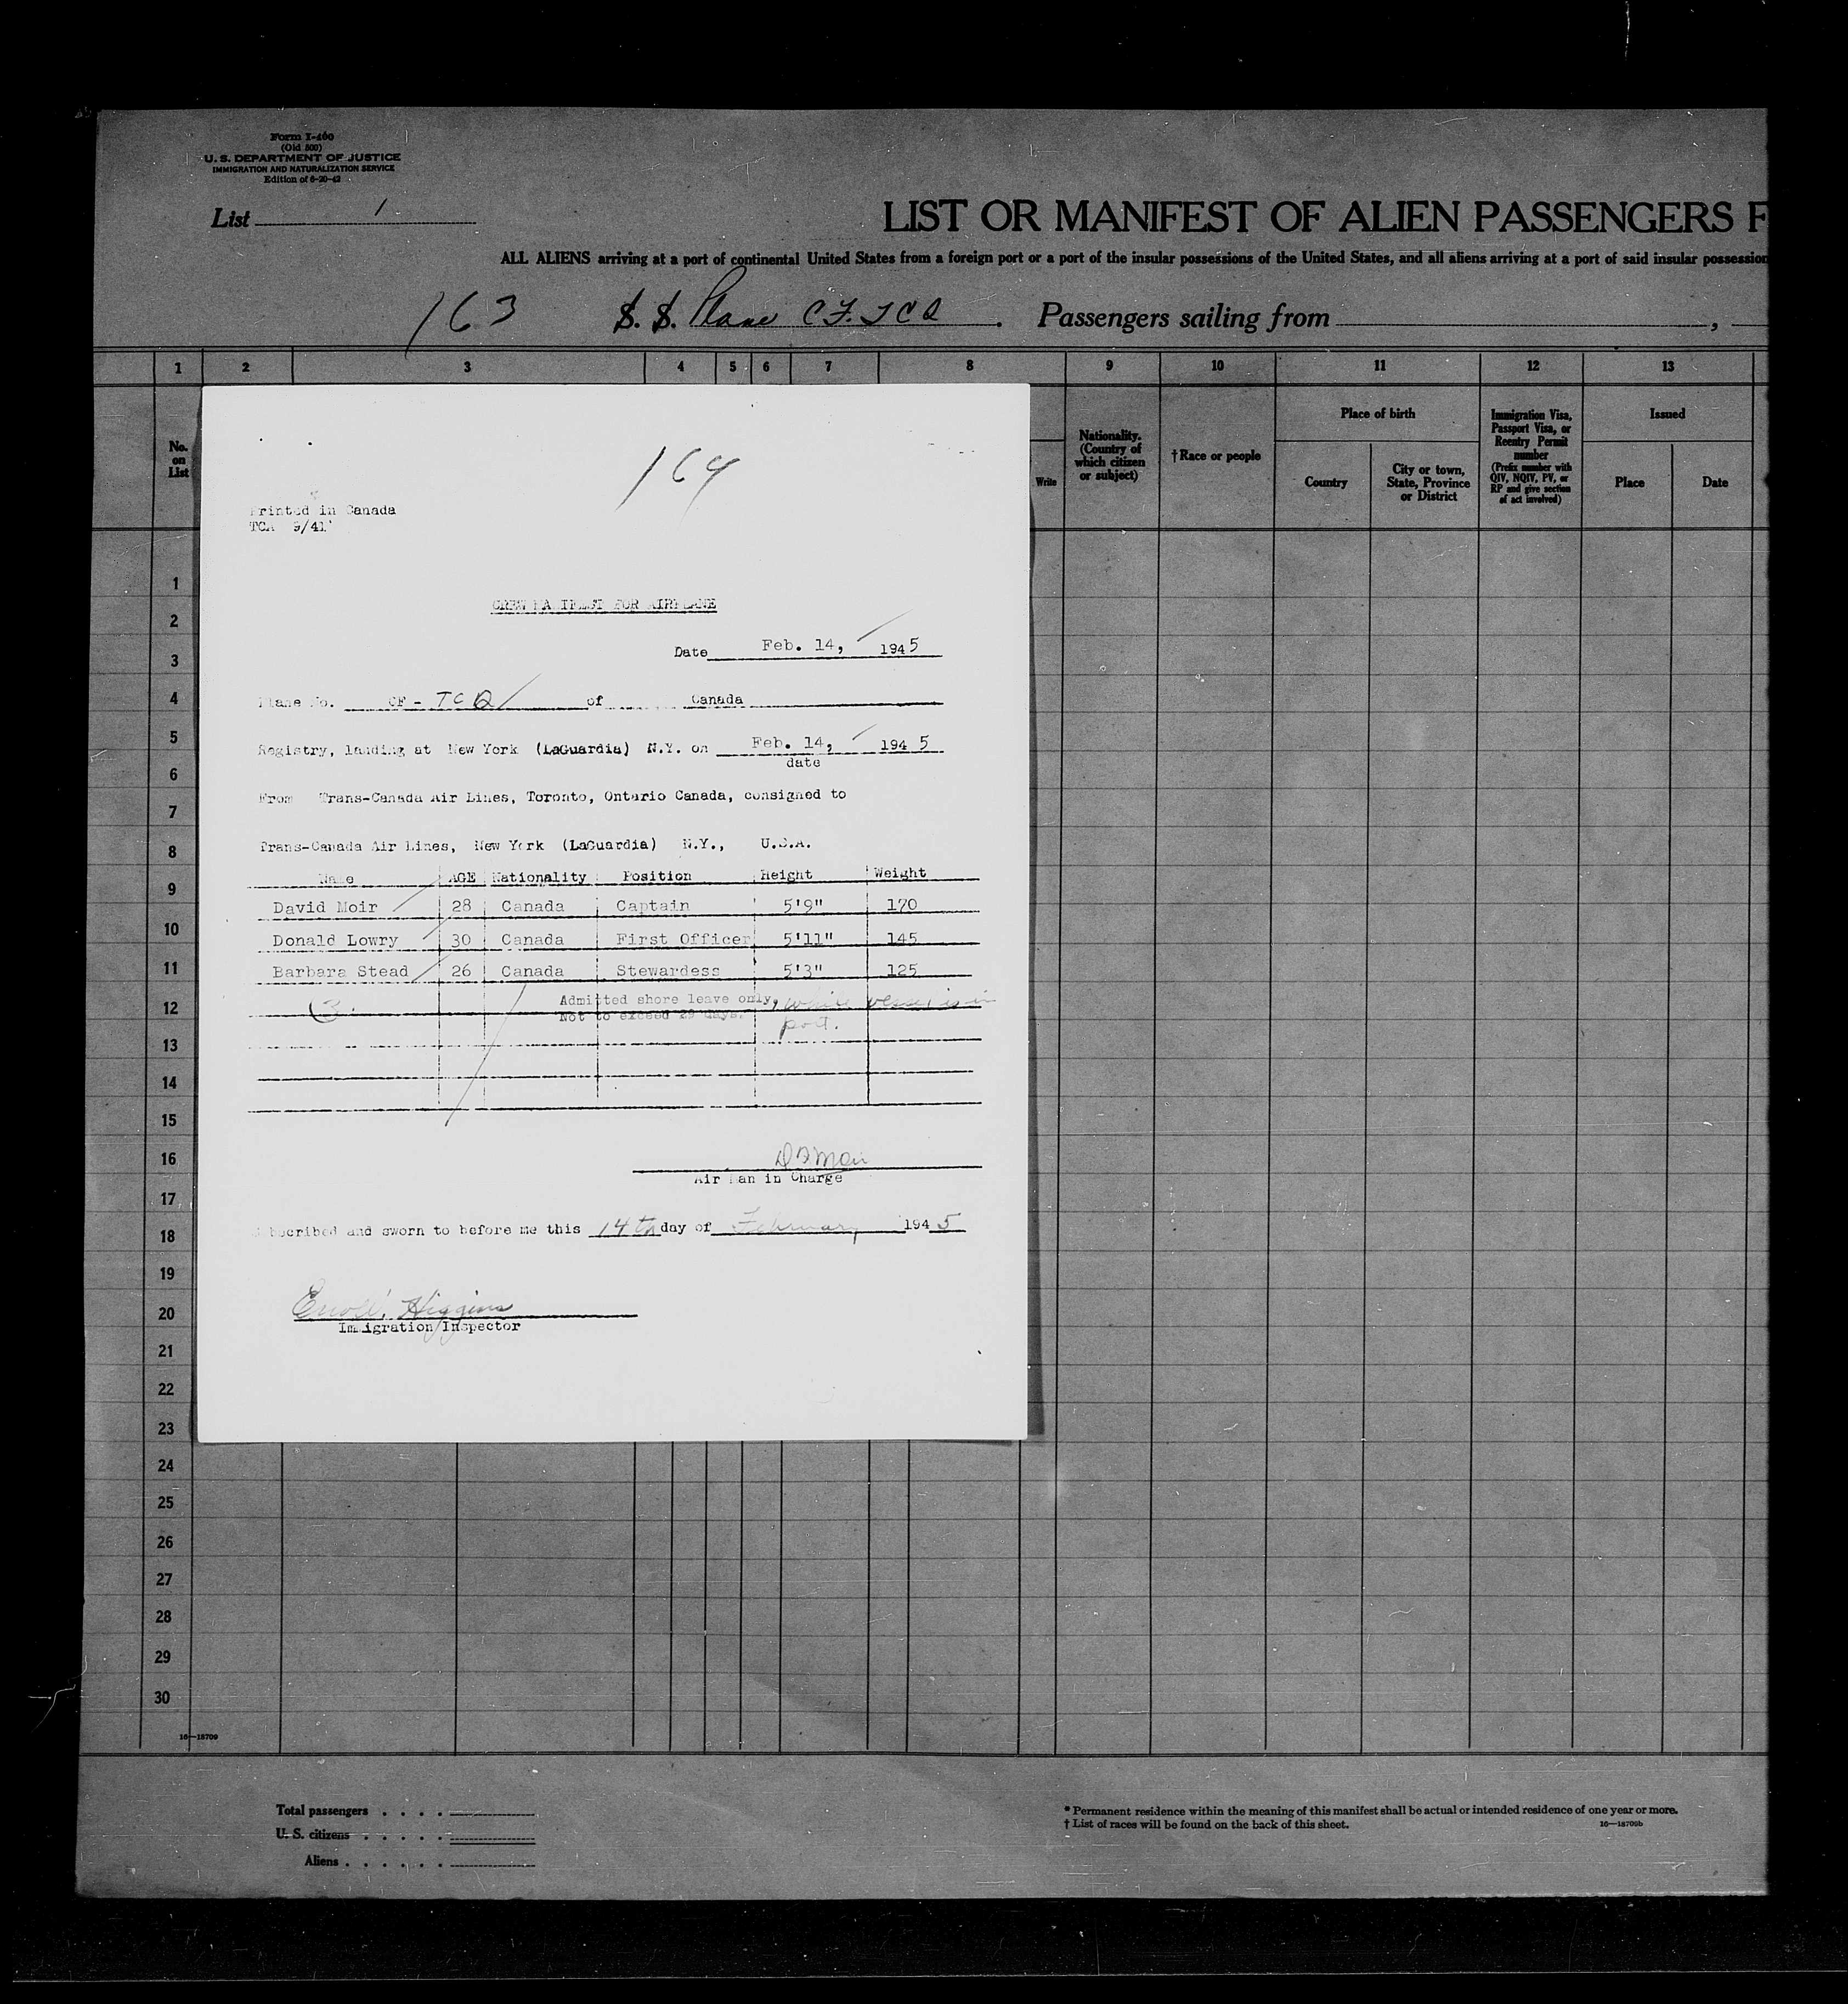 Form I-460
(Old 500)
U. S. DEPARTMENT OF JUSTICE
IMMIGRATION AND NATURALIZATION SERVICE
Edition of 6-20-42
List 1
LIST OR MANIFEST OF ALIEN PASSENGERS F
ALL ALIENS arriving at a port of continental United States from a foreign port or a port of the insular possessions of the United States, and all aliens arriving at a port of said insular possession
163 S. S. Plane CF. TCQ . Passengers sailing from ,
1 2 3 4 5 6 7 8 9 10 11 12 13
No. on List
Write
Nationality. (Country of which citizen or subject)
†Race or people
Place of birth
Country
City or town, State, Province or District
Immigration Visa, Passport Visa, or Reentry Permit number (Prefix number with QIV, NQIV, PV, or RP and give section of act involved)
Issued
Place
Date
164
Printed in Canada
TCA 9/41
CREW MANIFEST FOR AIRPLANE
Date Feb. 14, 1945
Plane No. CF - TCQ of Canada
Registry, landing at New York (LaGuardia) N.Y. on Feb. 14, 1945
date
From Trans-Canada Air Lines, Toronto, Ontario Canada, consigned to
Trans-Canada Air Lines, New York (LaGuardia) N.Y., U.S.A.
Name AGE Nationality Position Height Weight
David Moir 28 Canada Captain 5'9" 170
Donald Lowry 30 Canada First Officer 5'11" 145
Barbara Stead 26 Canada Stewardess 5'3" 125
(3) Admitted shore leave only, while vessel is in
Not to exceed 29 days. port.
Air Man in Charge
Subscribed and sworn to before me this 14th day of February 1945
Higgins
Immigration Inspector
1
2
3
4
5
6
7
8
9
10
11
12
13
14
15
16
17
18
19
20
21
22
23
24
25
26
27
28
29
30
16—18709
Total passengers . . . .
U. S. citizens . . . . .
Aliens . . . . . .
* Permanent residence within the meaning of this manifest shall be actual or intended residence of one year or more.
† List of races will be found on the back of this sheet.
16—18709b